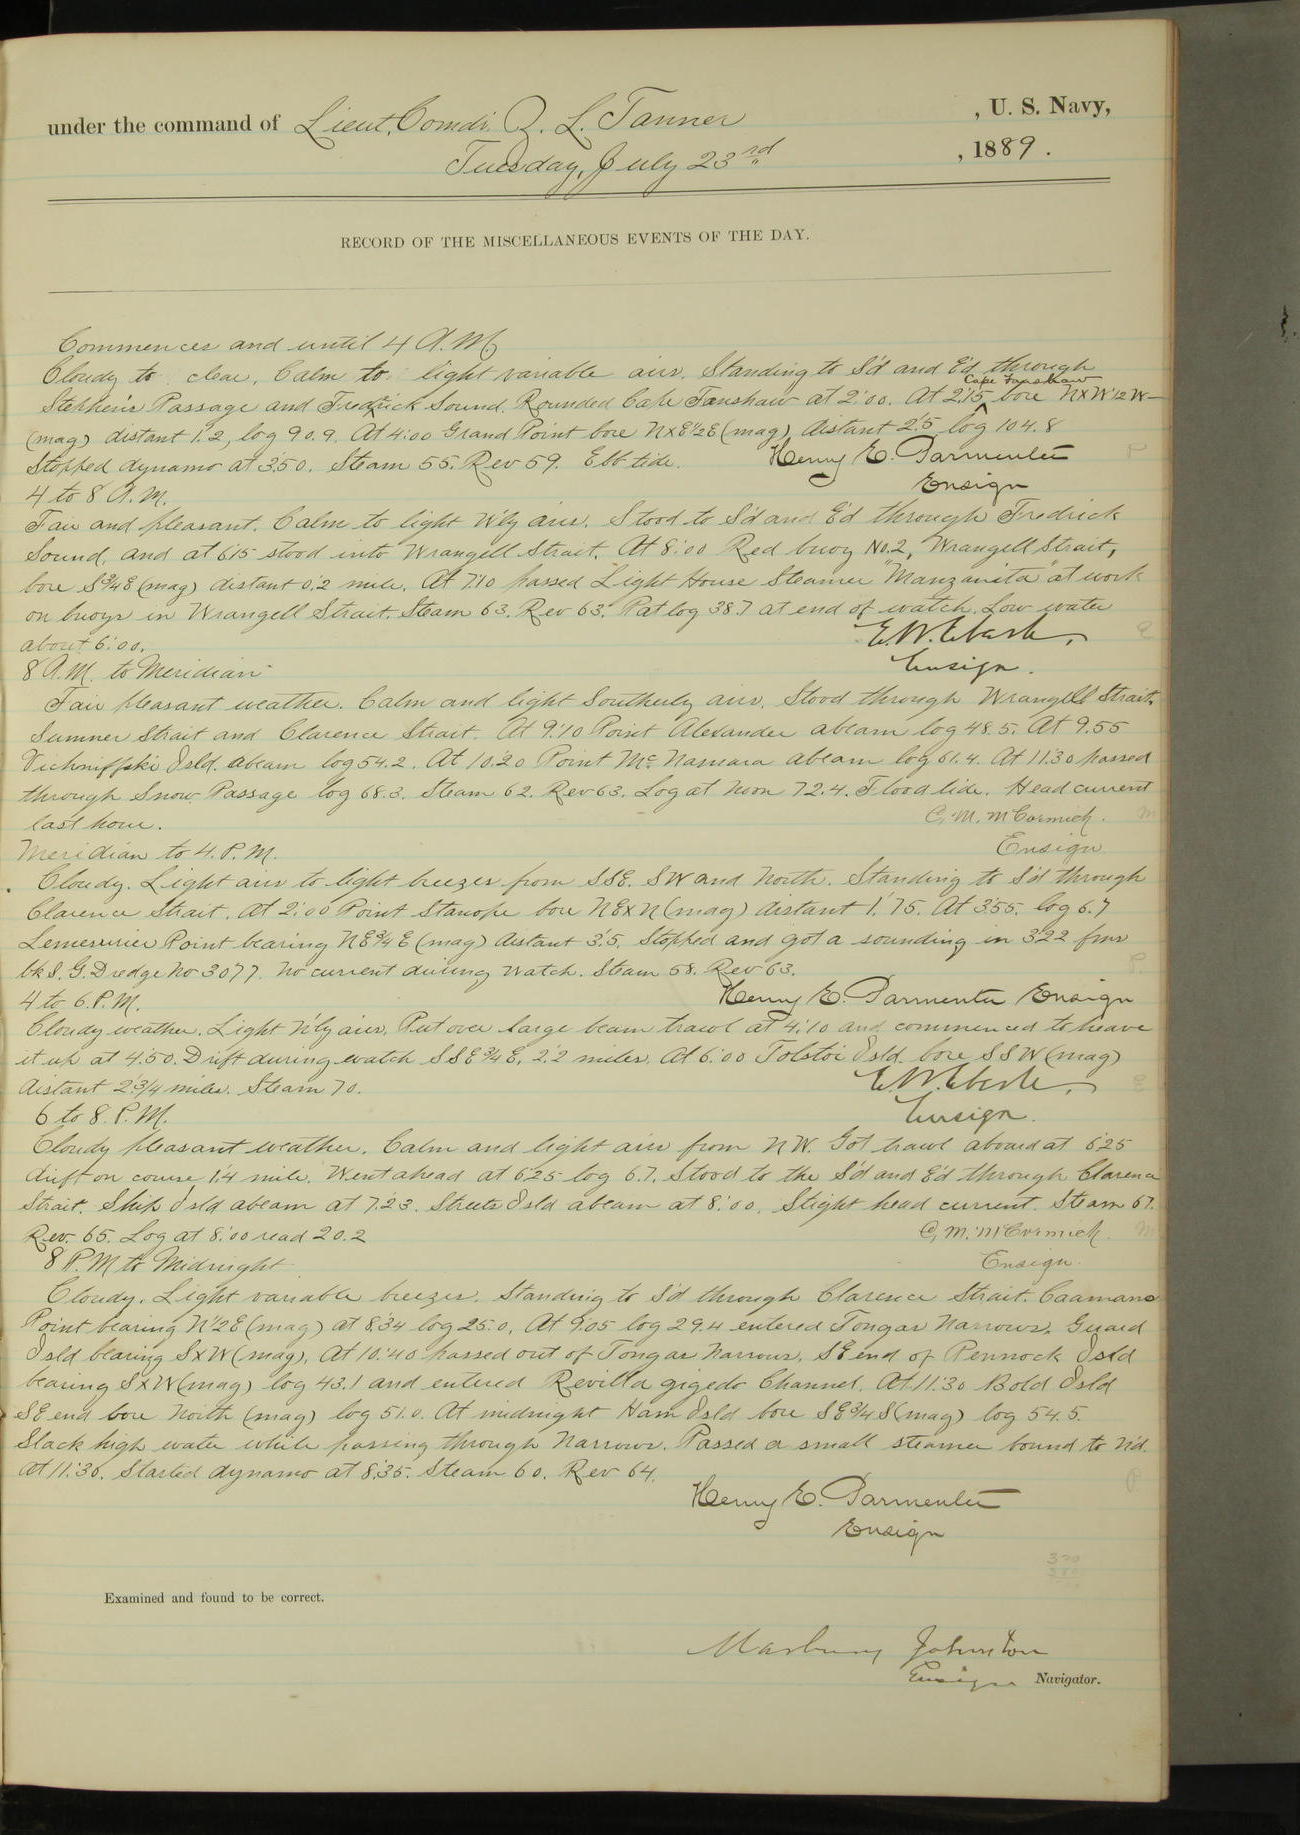 under the command of Lieut. Comdr. Z. L. Tanner , U. S. Navy,
Tuesday, July 23rd , 1889.
RECORD OF THE MISCELLANEOUS EVENTS OF THE DAY.
Commences and until 4 A.M.
Cloudy to clear. Calm to light variable airs. Standing to S'd and E'd through
Cape Fanshaw
Stephen's Passage and Fredrick Sound. Rounded Cape Fanshaw at 2:00. At 2:15 ^ bore NxW1/2W
(mag) distant 1.2, log 90.9. At 4:00 Grand Point bore NxE1/2E (mag) distant 2.5 log 104.8
Stopped dynamo at 3:50. Steam 55. Rev 59. Ebb tide. Henry E. Parmenter
Ensign
4 to 8 A.M.
Fair and pleasant. Calm to light N'ly airs. Stood to S'd and E'd through Fredrick
Sound, and at 6:15 stood into Wrangell Strait. At 8:00 Red buoy No.2, Wrangell Strait,
bore S3/4E (mag) distant 0.2 mile. At 7:10 passed Light House Steamer "Manzanita" at work
on buoys in Wrangell Strait. Steam 63. Rev 63. Pat log 38.7 at end of watch. Low water
about 6:00. E. W. Eberle,
Ensign.
8 A.M. to Meridian
Fair pleasant weather. Calm and light Southerly airs. Stood through Wrangell Strait,
Sumner Strait and Clarence Strait. At 9:10 Point Alexander abeam log 48.5. At 9.55
Vichniffski Isld. abeam log 54.2. At 10:20 Point Mc Namara abeam log 61.4. At 11:30 passed
through Snow Passage log 68.3. Steam 62. Rev 63. Log at Noon 72.4. Flood tide. Head current
last hour. C. M. McCormick.
Ensign
Meridian to 4. P.M.
Cloudy. Light airs to light breezes from SSE. SW and North. Standing to S'd through
Clarence Strait. At 2:00 Point Stanope bore NExN (mag) distant 1.75. At 3:55. log 6.7
Lemesurier Point bearing NE3/4E (mag) distant 3.5. Stopped and got a sounding in 322 fms
bk S. G. Dredge No 3077. No current during watch. Steam 58. Rev 63.
Henry E. Parmenter Ensign
4 to 6. P.M.
Cloudy weather. Light N'ly airs. Put over large beam trawl at 4:10 and commenced to heave
it up at 4:50. Drift during watch SSE3/4E, 2.2 miles. At 6:00 Tolstoi Isld. bore SSW (mag)
distant 2 3/4 miles. Steam 70. E. W. Eberle,
Ensign.
6 to 8. P.M.
Cloudy pleasant weather. Calm and light airs from NW. Got trawl aboard at 6:25
drift on course 1.4 mile. Went ahead at 6:25 log 6.7. Stood to the S'd and E'd through Clarence
Strait. Ship Isld abeam at 7:23. Streets Isld abeam at 8:00. Slight head current. Steam 67.
Rev. 65. Log at 8:00 read 20.2 C. M. McCormick.
Ensign.
8 P.M. to Midnight
Cloudy. Light variable breezes. Standing to S'd through Clarence Strait. Caamano
Point bearing N1/2E (mag) at 8:34 log 25.0. At 9:05 log 29.4 entered Tongas Narrows. Guard
Isld bearing SxW (mag). At 10:40 passed out of Tongas Narrows. SE end of Pennock Isld
bearing SxW (mag) log 43.1 and entered Revilla gigedo Channel. At 11:30 Bold Isld
SE end bore North (mag) log 51.0. At midnight Ham Isld bore SE3/4S (mag) log 54.5.
Slack high water while passing through Narrows. Passed a small steamer bound to N'd.
at 11:30. Started dynamo at 8:35. Steam 60. Rev 64.
Henry E. Parmenter
Ensign
Examined and found to be correct.
Marbury Johnston
Ensign Navigator.